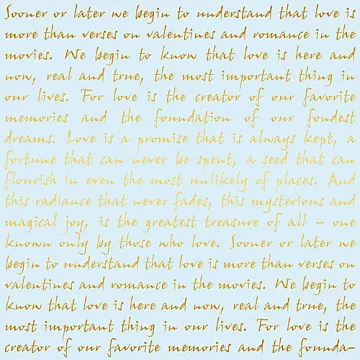 Sooner or later we begin to understand that love is
more than verses on valentines and romance in the
movies. We begin to know that love is here and
now, real and true, the most important thing in
our lives. For love is the creator of our favorite
memories and the foundation of our fondest
dreams. Love is a promise that is always kept, a
fortune that can never be spent, a seed that can
flourish in even the most unlikely of places. And
this radiance that never fades, this mysterious and
magical joy, is the greatest treasure of all – one
known only by those who love. Sooner or later we
begin to understand that love is more than verses on
valentines and romance in the movies. We begin to
know that love is here and now, real and true, the
most important thing in our lives. For love is the
creator of our favorite memories and the founda-